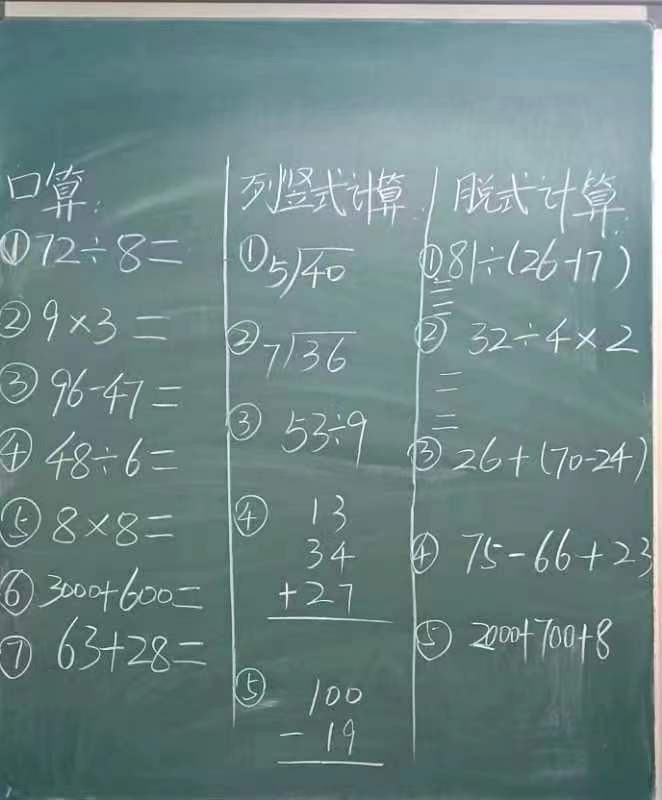 口算:
①72÷8=
②9×3=
③96-47=
④48÷6=
⑤8×8=
⑥3000+600=
⑦63+28=
列竖式计算:
①5)40
②7)36
③53÷9
④13
34
+27
⑤100
-19
脱式计算:
①81÷(26-17)
=
=
②32÷4×2
=
=
③26+(70-24)
④75-66+23
⑤2000+700+8